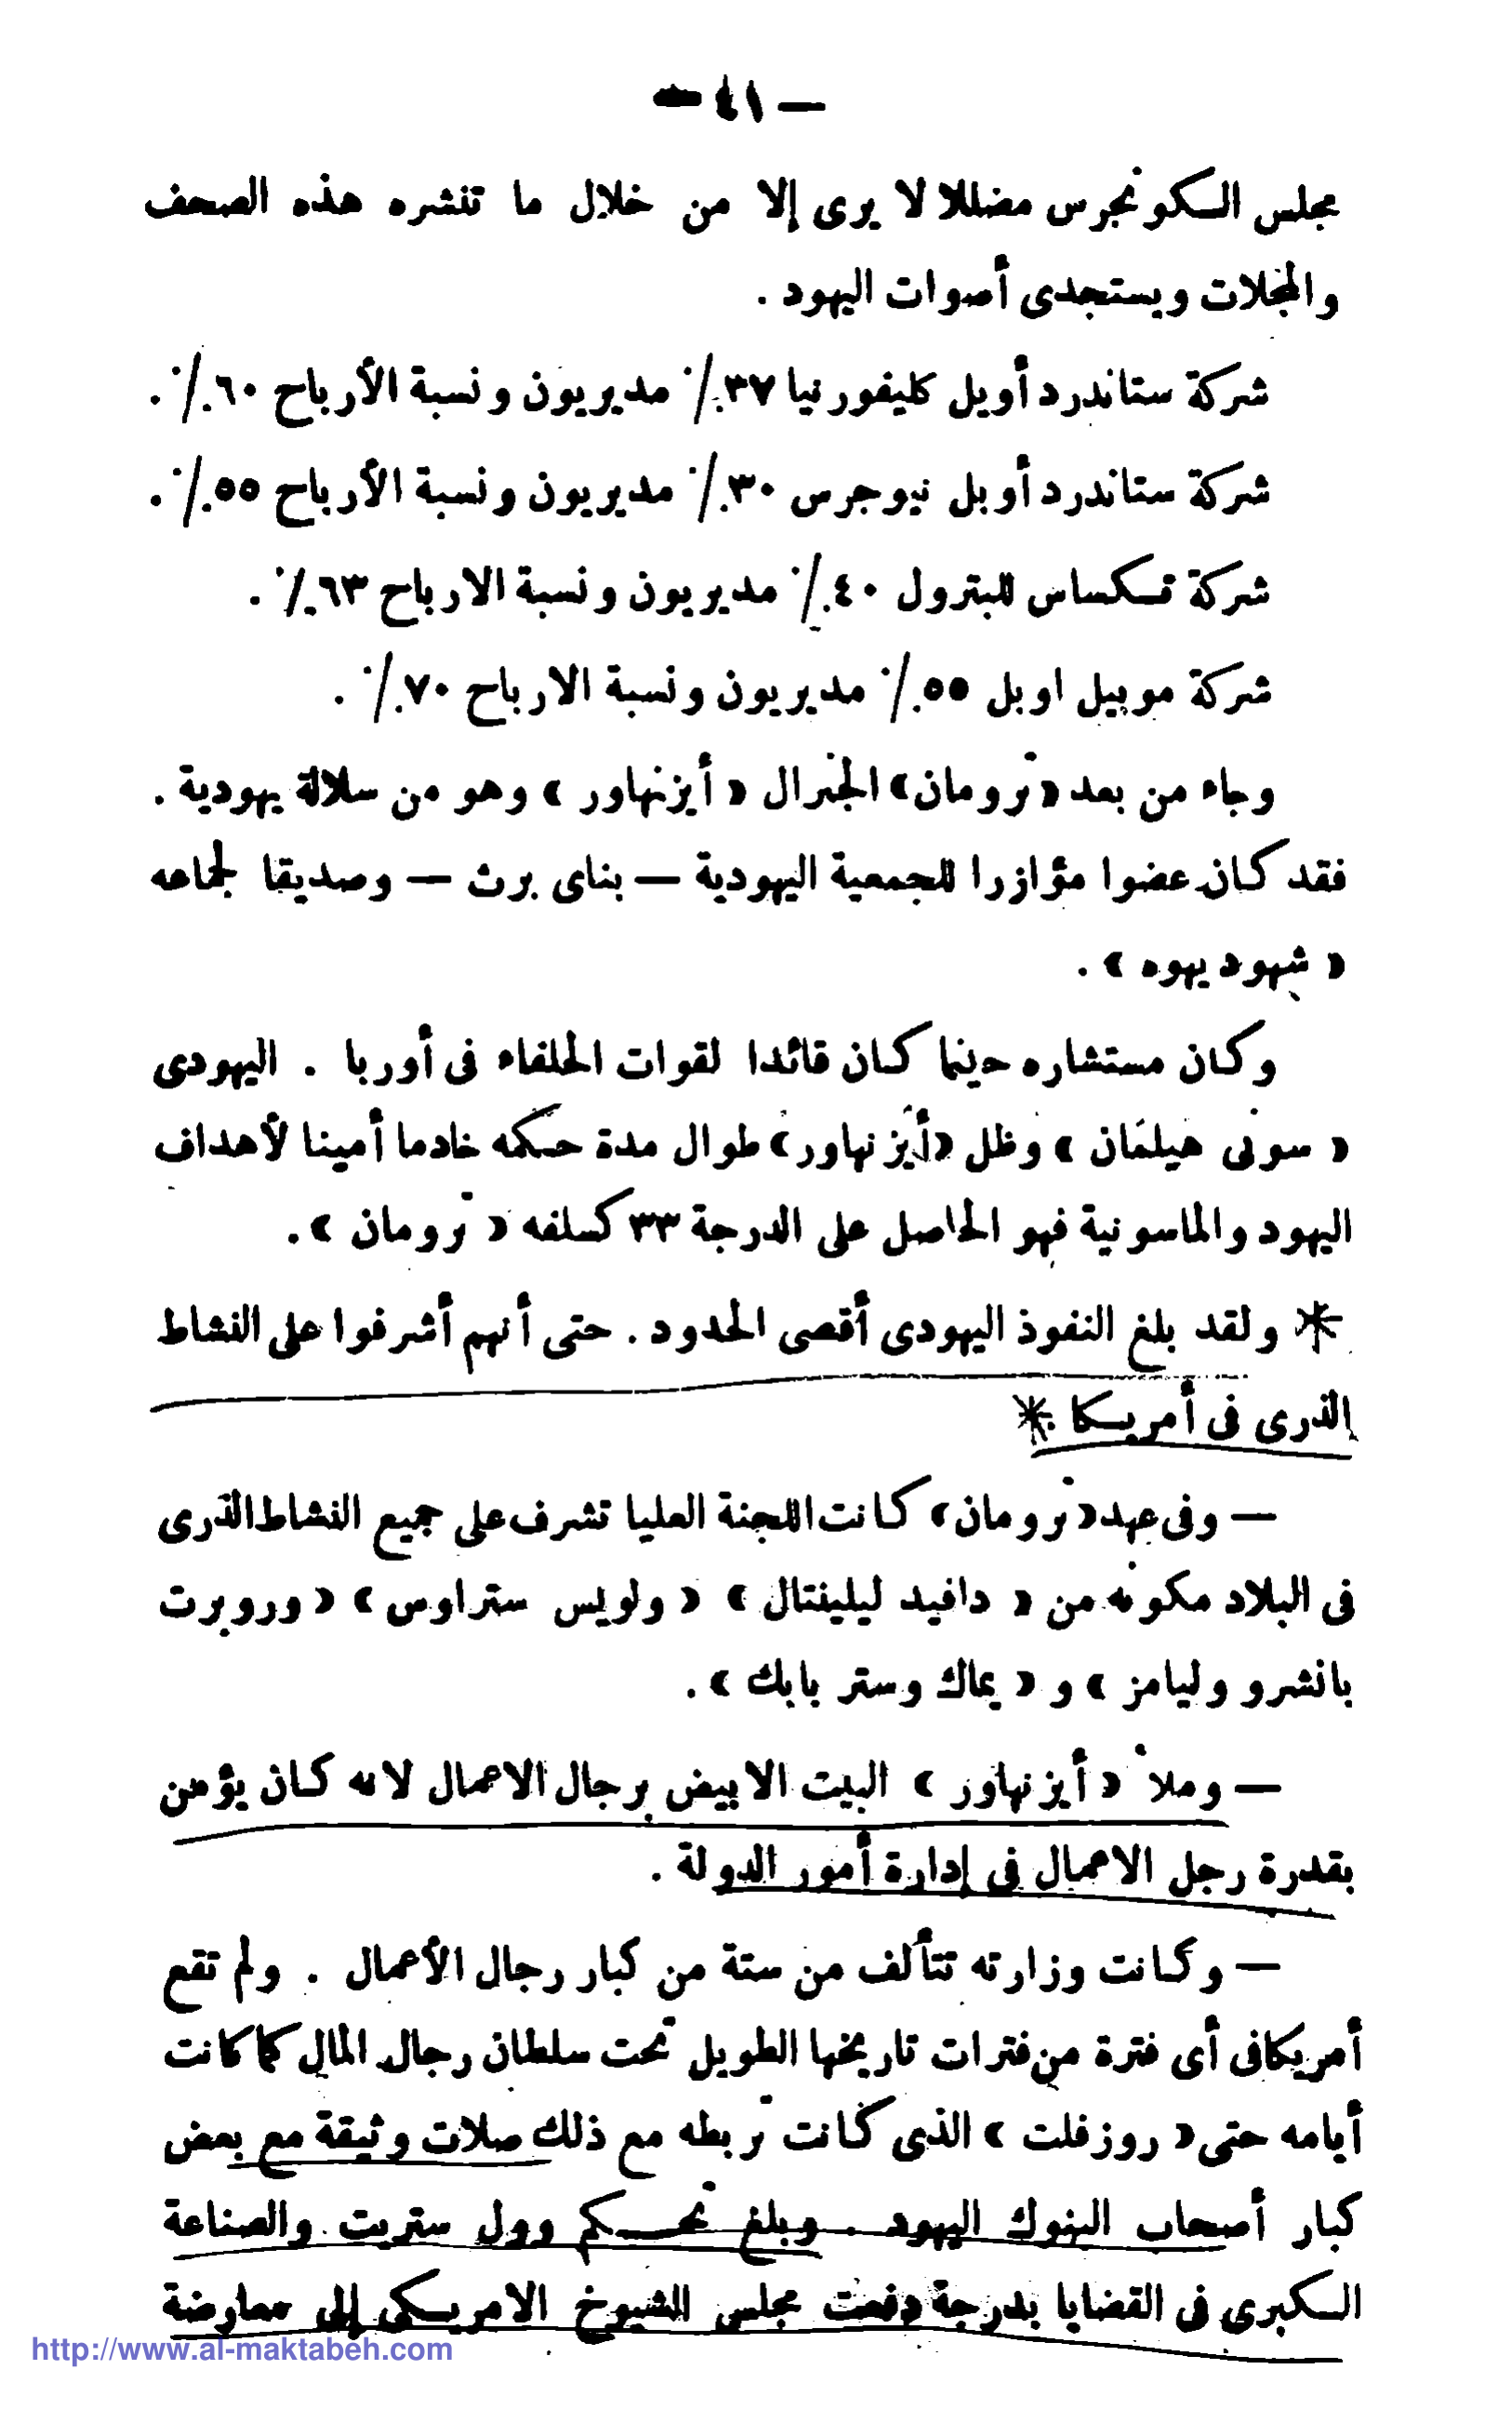 — ٤١ —
مجلس الكونجرس مضللا لا يرى إلا من خلال ما تنشره هذه الصحف
والمجلات ويستجدى أصوات اليهود .
شركة ستاندرد أويل كليفورنيا ٣٧٪ مديريون ونسبة الأرباح ٦٠٪ .
شركة ستاندرد أويل نيوجرس ٣٠٪ مديريون ونسبة الأرباح ٥٥٪ .
شركة تكساس للبترول ٤٠٪ مديريون ونسبة الارباح ٦٣٪ .
شركة موبيل اويل ٥٥٪ مديريون ونسبة الارباح ٧٠٪ .
وجاء من بعد « ترومان » الجنرال « أيزنهاور » وهو من سلالة يهودية .
فقد كان عضوا مؤازرا للجمعية اليهودية — بناى برث — وصديقا لجماعه
« شهود يهوه » .
وكان مستشاره حينما كان قائدا لقوات الحلفاء فى أوربا . اليهودى
« سونى هيلمان » وظل « أيزنهاور » طوال مدة حكمه خادما أمينا لأهداف
اليهود والماسونية فهو الحاصل على الدرجة ٣٣ كسلفه « ترومان » .
* ولقد بلغ النفوذ اليهودى أقصى الحدود . حتى أنهم أشرفوا على النشاط
الذرى فى أمريكا . *
— وفى عهد « ترومان » كانت اللجنة العليا تشرف على جميع النشاط الذرى
فى البلاد مكونه من « دافيد ليلينتال » « ولويس ستراوس » « وروبرت
بانشرو وليامز » و « يماك وستر بابك » .
— وملأ « أيزنهاور » البيت الابيض برجال الاعمال لانه كان يؤمن
بقدرة رجل الاعمال فى إدارة أمور الدولة .
— وكانت وزارته تتألف من ستة من كبار رجال الأعمال . ولم تقع
أمريكا فى أى فترة من فترات تاريخها الطويل تحت سلطان رجال المال كما كانت
أيامه حتى « روزفلت » الذى كانت تربطه مع ذلك صلات وثيقة مع بعض
كبار أصحاب البنوك اليهود . وبلغ تحكم وول ستريت والصناعة
الكبرى فى القضايا بدرجة دفعت مجلس الشيوخ الامريكى إلى معارضة
http://www.al-maktabeh.com